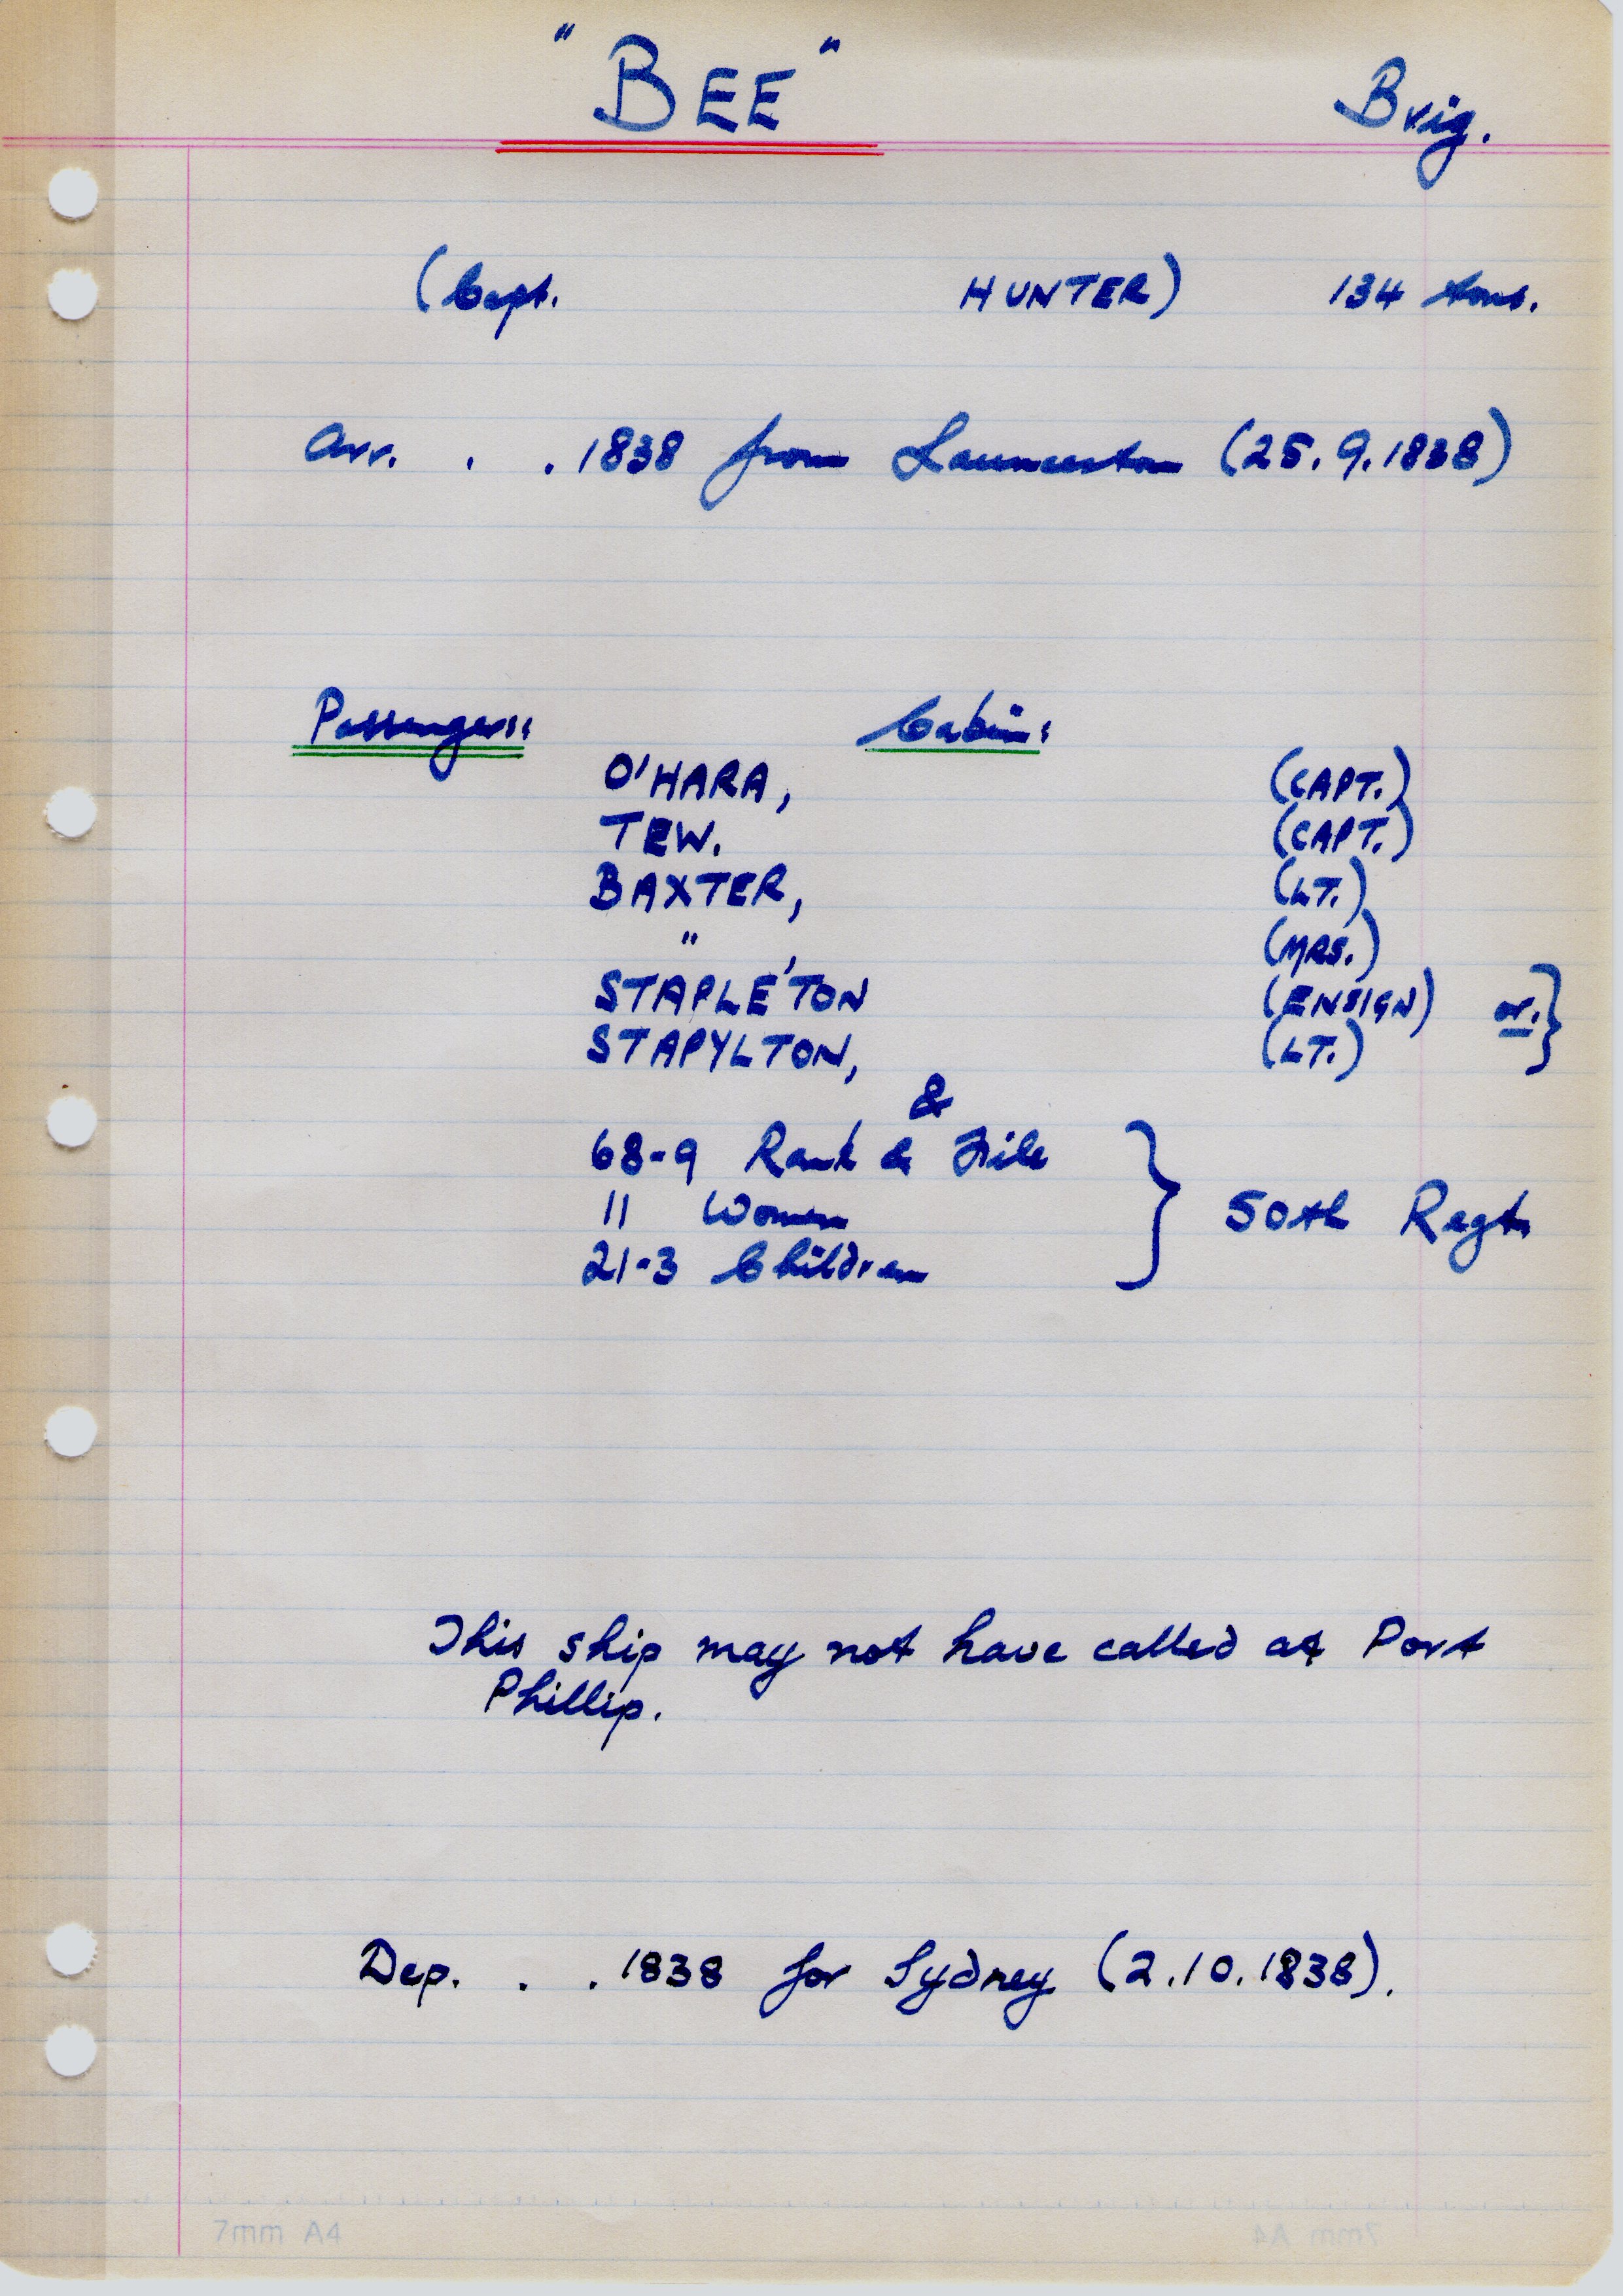 "BEE" Brig.
(Capt. HUNTER) 134 tons.
Arr. . . 1838 from Launceston (25.9.1838)
Passengers: Cabin:
O'HARA, (CAPT.)
TEW. (CAPT.)
BAXTER, (LT.)
" , (MRS.)
STAPLE'TON (ENSIGN) or. }
STAPYLTON, (LT.)
&
68-9 Rank & File
11 Women } 50th Regt.
21-3 Children
This ship may not have called at Port
Phillip.
Dep. . . 1838 for Sydney (2.10.1838).
7mm A4